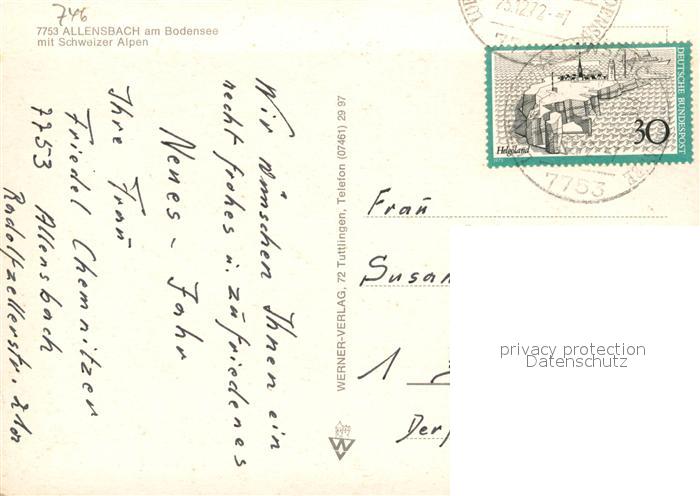 746
7753 ALLENSBACH am Bodensee
mit Schweizer Alpen
Wir wünschen Ihnen ein
recht frohes u. zufriedenes
Neues - Jahr
Ihre Frau
Friedel Chemnitzer
7753 Allensbach
Radolfzellerstr.
WERNER-VERLAG, 72 Tuttlingen, Telefon (07461) 29 97
W
.12.72.-7
DEUTSCHE BUNDESPOST
30
Helgoland
1972
7753
Frau
Susan
1
Der
privacy protection
Datenschutz